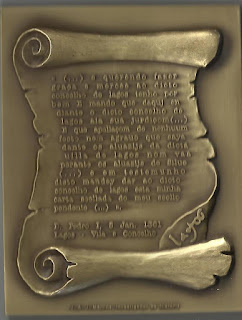 « (...) e querendo fazer
graça e mercee ao dicto
concelho de lagos tenho por
bem E mando que daquj en
diante o dicto concelho de
lagos aia sua jurdiçom (...)
E que apellaçom de nenhuum
feito nem agrauo que saya
dante os aluazijs da dicta
uilla de lagos nom vaa
perante os aluazijs de Silue
(...) e em testemunho
desto mandey dar ao dicto
concelho de lagos esta minha
carta seellada do meu seello
pendente (...) ».
D. Pedro I, 5 Jan. 1361
Lagos - Vila e Concelho
Lagos